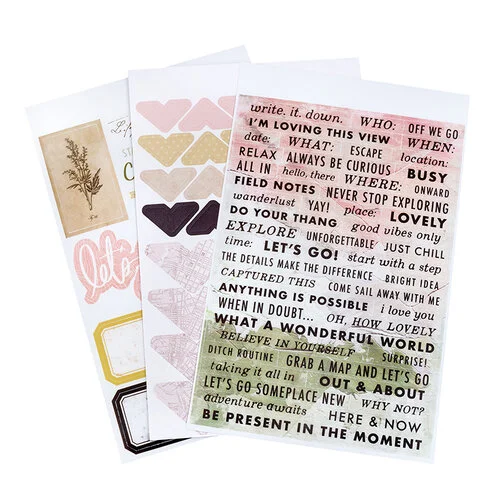 write. it. down. WHO: OFF WE GO
I'M LOVING THIS VIEW WHEN:
date: WHAT: ESCAPE location:
RELAX ALWAYS BE CURIOUS BUSY
ALL IN hello, there WHERE: ONWARD
FIELD NOTES NEVER STOP EXPLORING
wanderlust YAY! place: LOVELY
DO YOUR THANG good vibes only
EXPLORE UNFORGETTABLE JUST CHILL
time: LET'S GO! start with a step
THE DETAILS MAKE THE DIFFERENCE BRIGHT IDEA
CAPTURED THIS COME SAIL AWAY WITH ME
ANYTHING IS POSSIBLE i love you
WHEN IN DOUBT... OH, HOW LOVELY
WHAT A WONDERFUL WORLD
BELIEVE IN YOURSELF SURPRISE!
DITCH ROUTINE GRAB A MAP AND LET'S GO
taking it all in OUT & ABOUT
LET'S GO SOMEPLACE NEW WHY NOT?
adventure awaits HERE & NOW
BE PRESENT IN THE MOMENT
let's